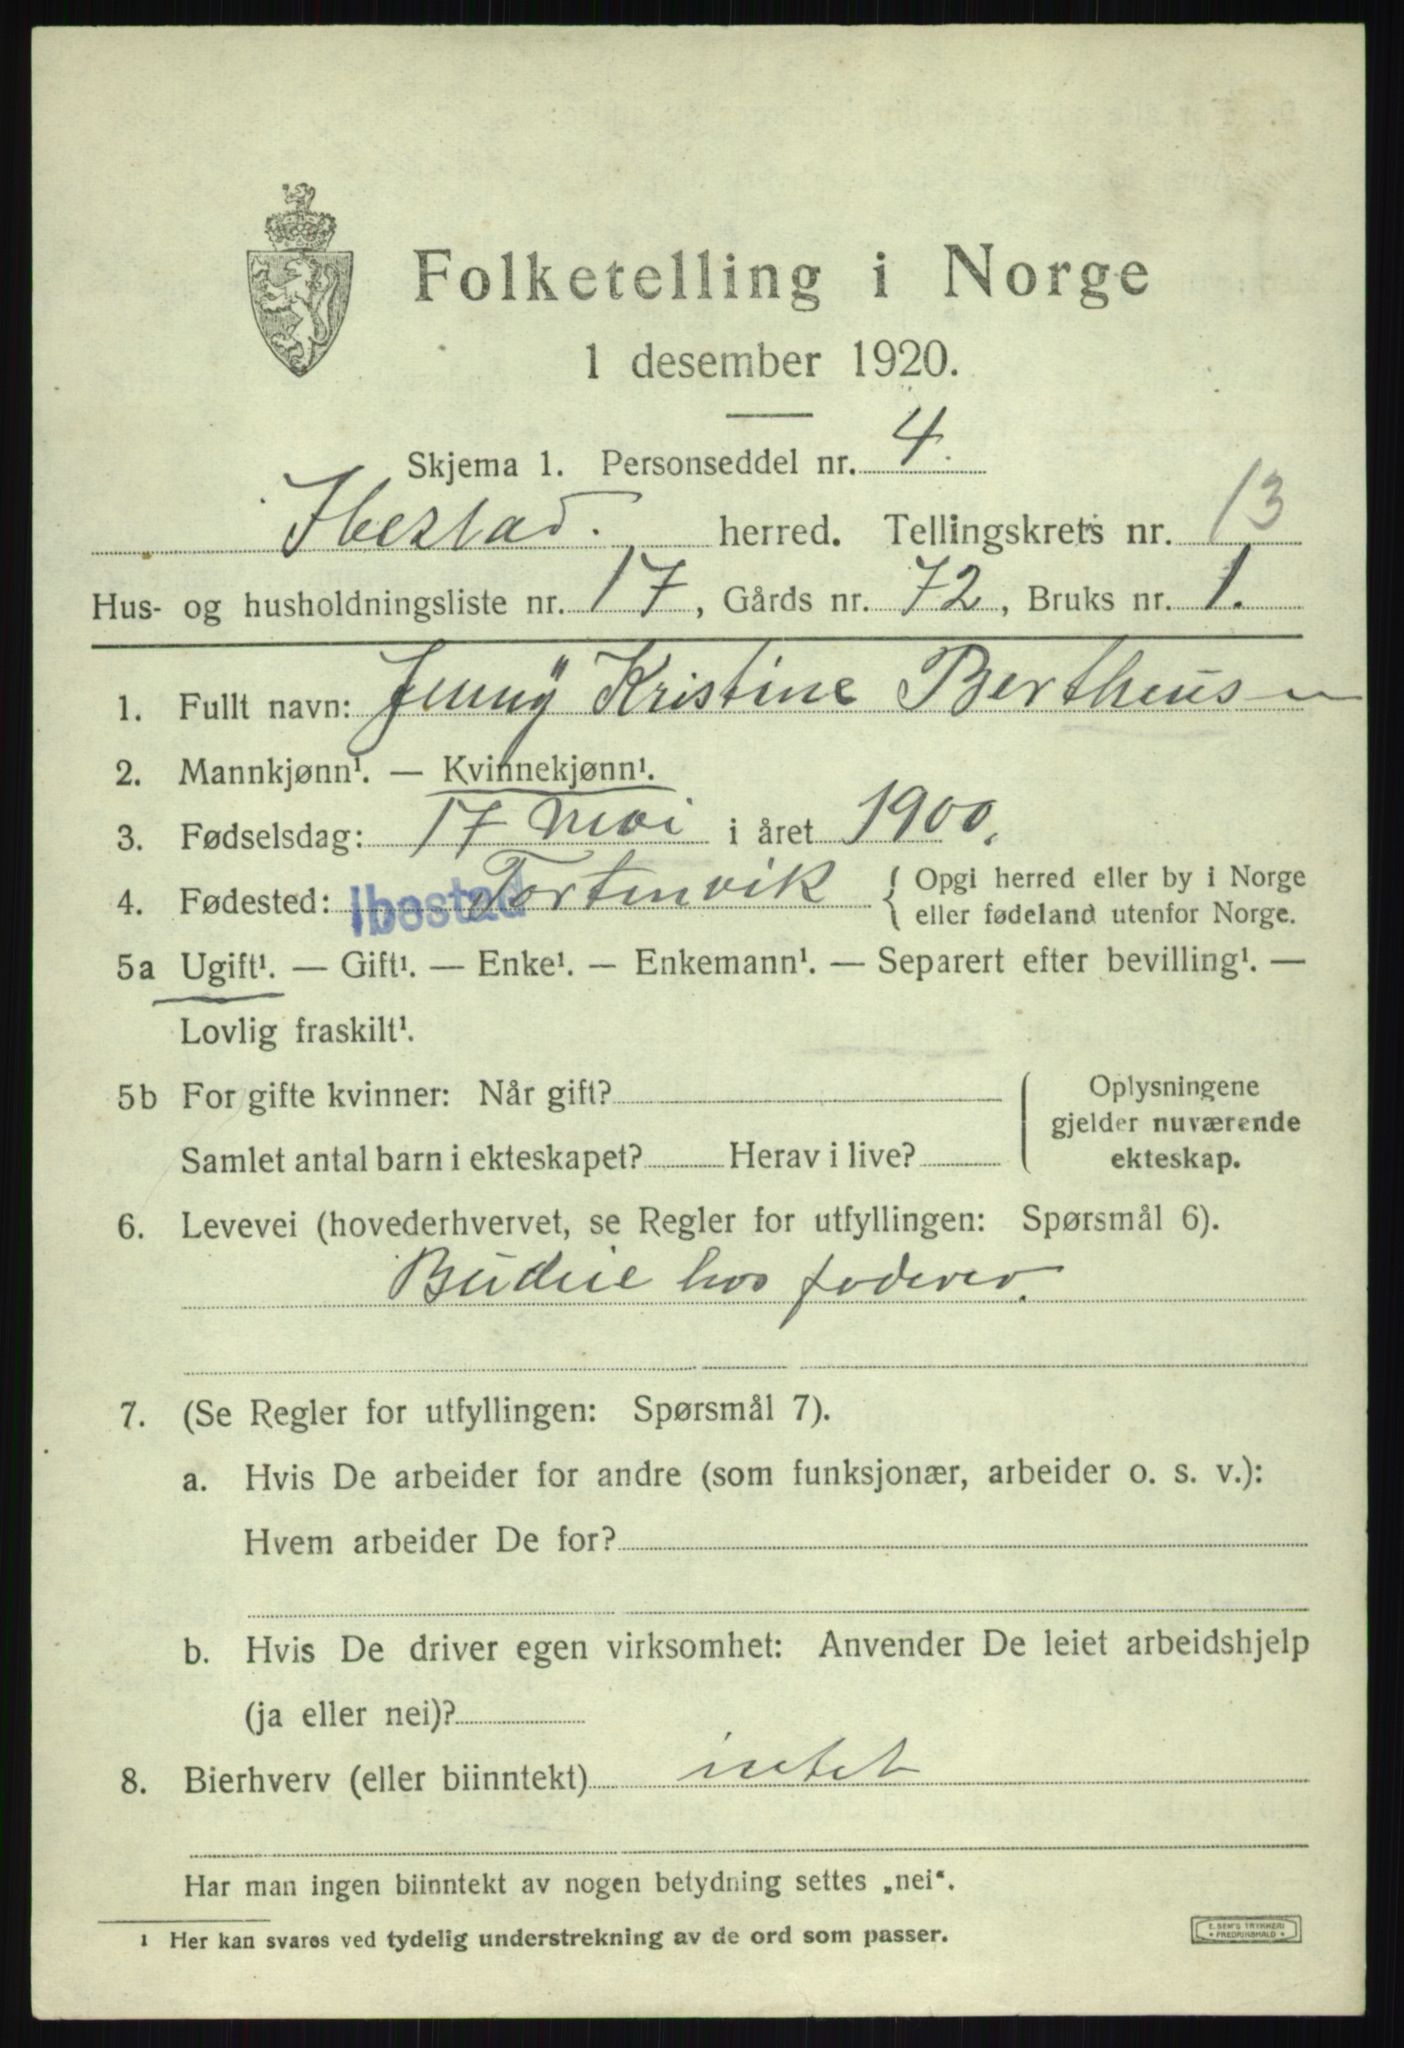 Folketelling i Norge
1 desember 1920.
Skjema 1. Personseddel nr. 4.
Ibestad. herred. Tellingskrets nr. 13
Hus- og husholdningsliste nr. 17, Gårds nr. 72, Bruks nr. 1.
1. Fullt navn: Jenny Kristine Bertheusen
2. Mannkjønn¹. — Kvinnekjønn¹.
3. Fødselsdag: 17 Mai i året 1900.
4. Fødested: Ibestad Tortenvik { Opgi herred eller by i Norge
eller fødeland utenfor Norge.
5a Ugift¹. — Gift¹. — Enke¹. — Enkemann¹. — Separert efter bevilling¹. —
Lovlig fraskilt¹.
5b For gifte kvinner: Når gift? Oplysningene
gjelder nuværende
Samlet antal barn i ekteskapet? Herav i live? ekteskap.
6. Levevei (hovederhvervet, se Regler for utfyllingen: Spørsmål 6).
Budeie hos
7. (Se Regler for utfyllingen: Spørsmål 7).
a. Hvis De arbeider for andre (som funksjonær, arbeider o. s. v.):
Hvem arbeider De for?
b. Hvis De driver egen virksomhet: Anvender De leiet arbeidshjelp
(ja eller nei)?
8. Bierhverv (eller biinntekt) intet
Har man ingen biinntekt av nogen betydning settes „nei“.
¹ Her kan svares ved tydelig understrekning av de ord som passer.
E. SEM'S TRYKKERI
FREDRIKSHALD